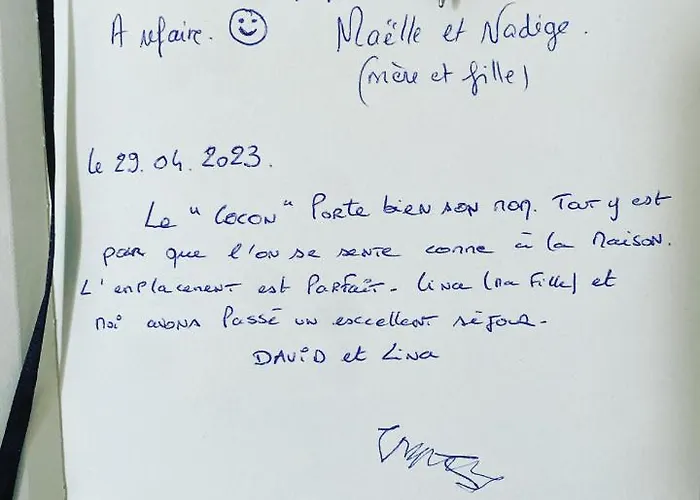 A refaire. Maëlle et Nadège.
(mère et fille)
le 29.04.2023.
Le "COCON" Porte bien son nom. Tout y est
pour que l'on se sente comme à la maison.
L'emplacement est Parfait. Lina (ma fille) et
moi avons Passé un excellent séjour.
DAVID et Lina